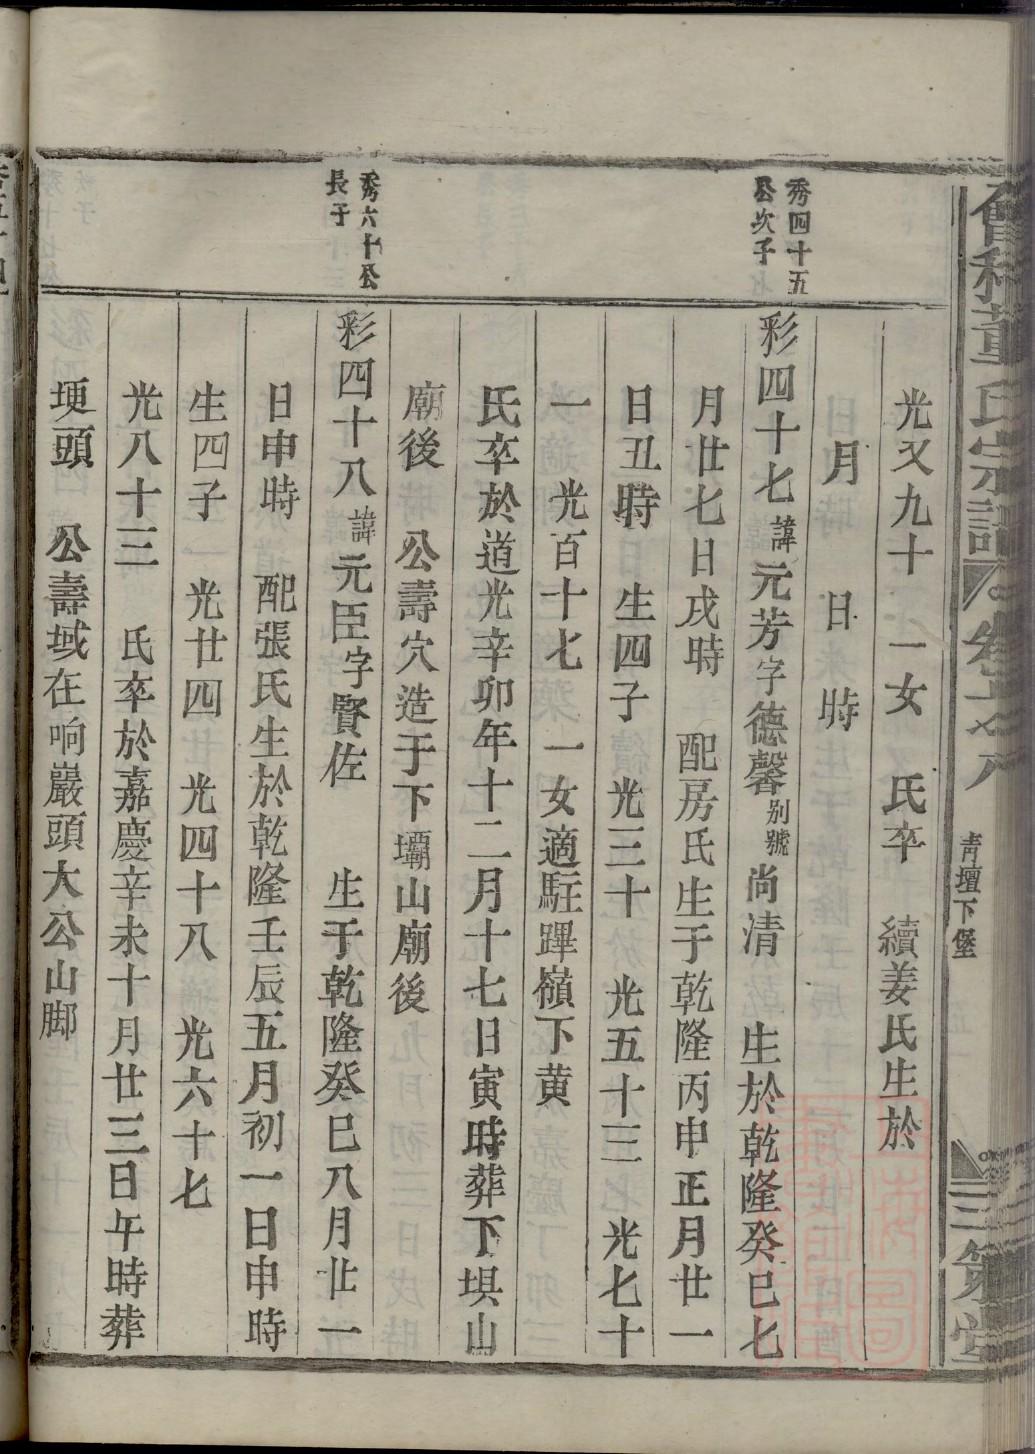 董氏宗譜
青壇下堡
三策堂
光又九十　一女　氏卒　續姜氏生於
月　日　時
秀四十五
公次子
彩四十七諱元芳字德馨别號尚清　生於乾隆癸巳七
月廿七日戌時　配房氏生于乾隆丙申正月廿一
日丑時　生四子　光三十　光五十三　光七十
一　光百十七　一女適駐蹕嶺下黄
氏卒於道光辛卯年十二月十七日寅時葬下垻山
廟後　公壽穴造于下壩山廟後
秀六十公
長子
彩四十八諱元臣字賢佐　生于乾隆癸巳八月廿一
日申時　配張氏生於乾隆壬辰五月初一日申時
生四子　光廿四　光四十八　光六十七
光八十三　氏卒於嘉慶辛未十月廿三日午時葬
埂頭　公壽域在响巖頭大公山脚